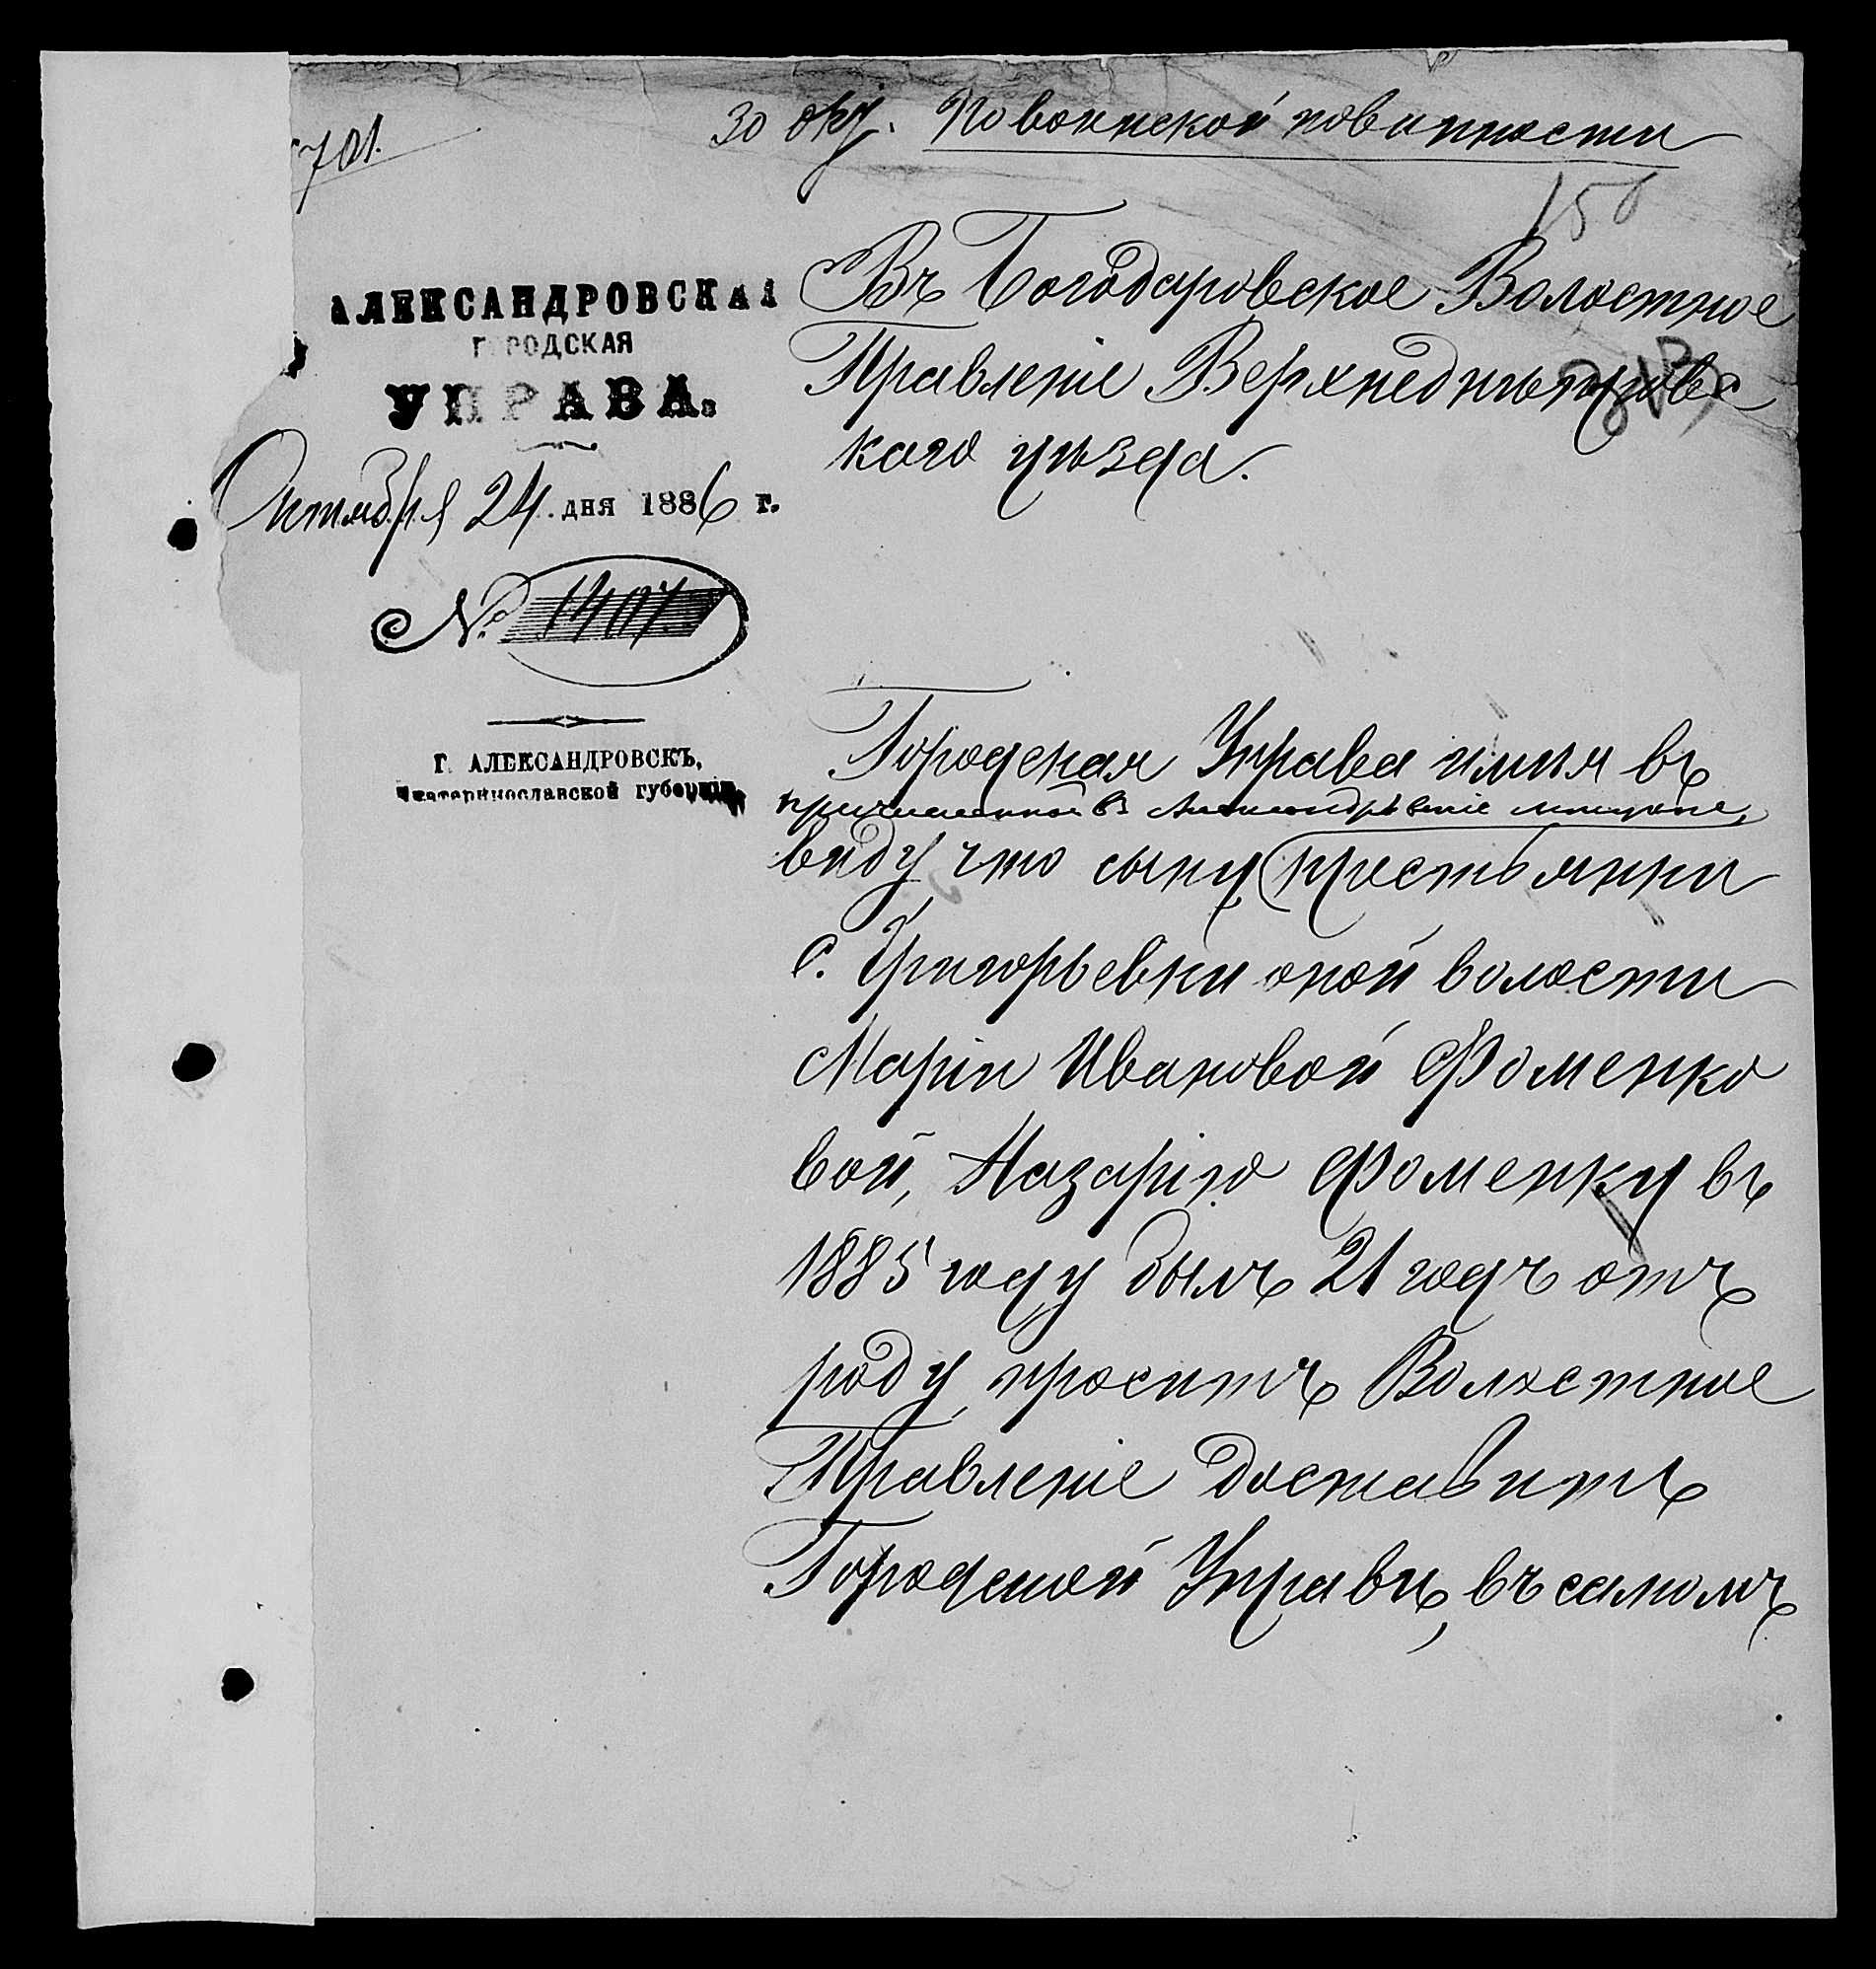 701.
30 окт. По воинской повинности
150
АЛЕКСАНДРОВСКАЯ
ГОРОДСКАЯ
УПРАВА.
Октября 24 дня 1886 г.
№ 1407
Г. АЛЕКСАНДРОВСКЪ,
Екатеринославской губерніи
Въ Богодаровское Волостное
Правленіе Верхнеднѣпровс
каго уѣзда.
Городская Управа имѣя въ
причисленной въ Александровскіе мѣщане,
виду что сыну крестьянки
с. Григорьевки оной волости
Маріи Ивановой Фоменко
вой, Назарію Фоменку въ
1885 году былъ 21 годъ отъ
роду, проситъ Волостное
Правленіе доставить
Городской Управѣ, въ самомъ